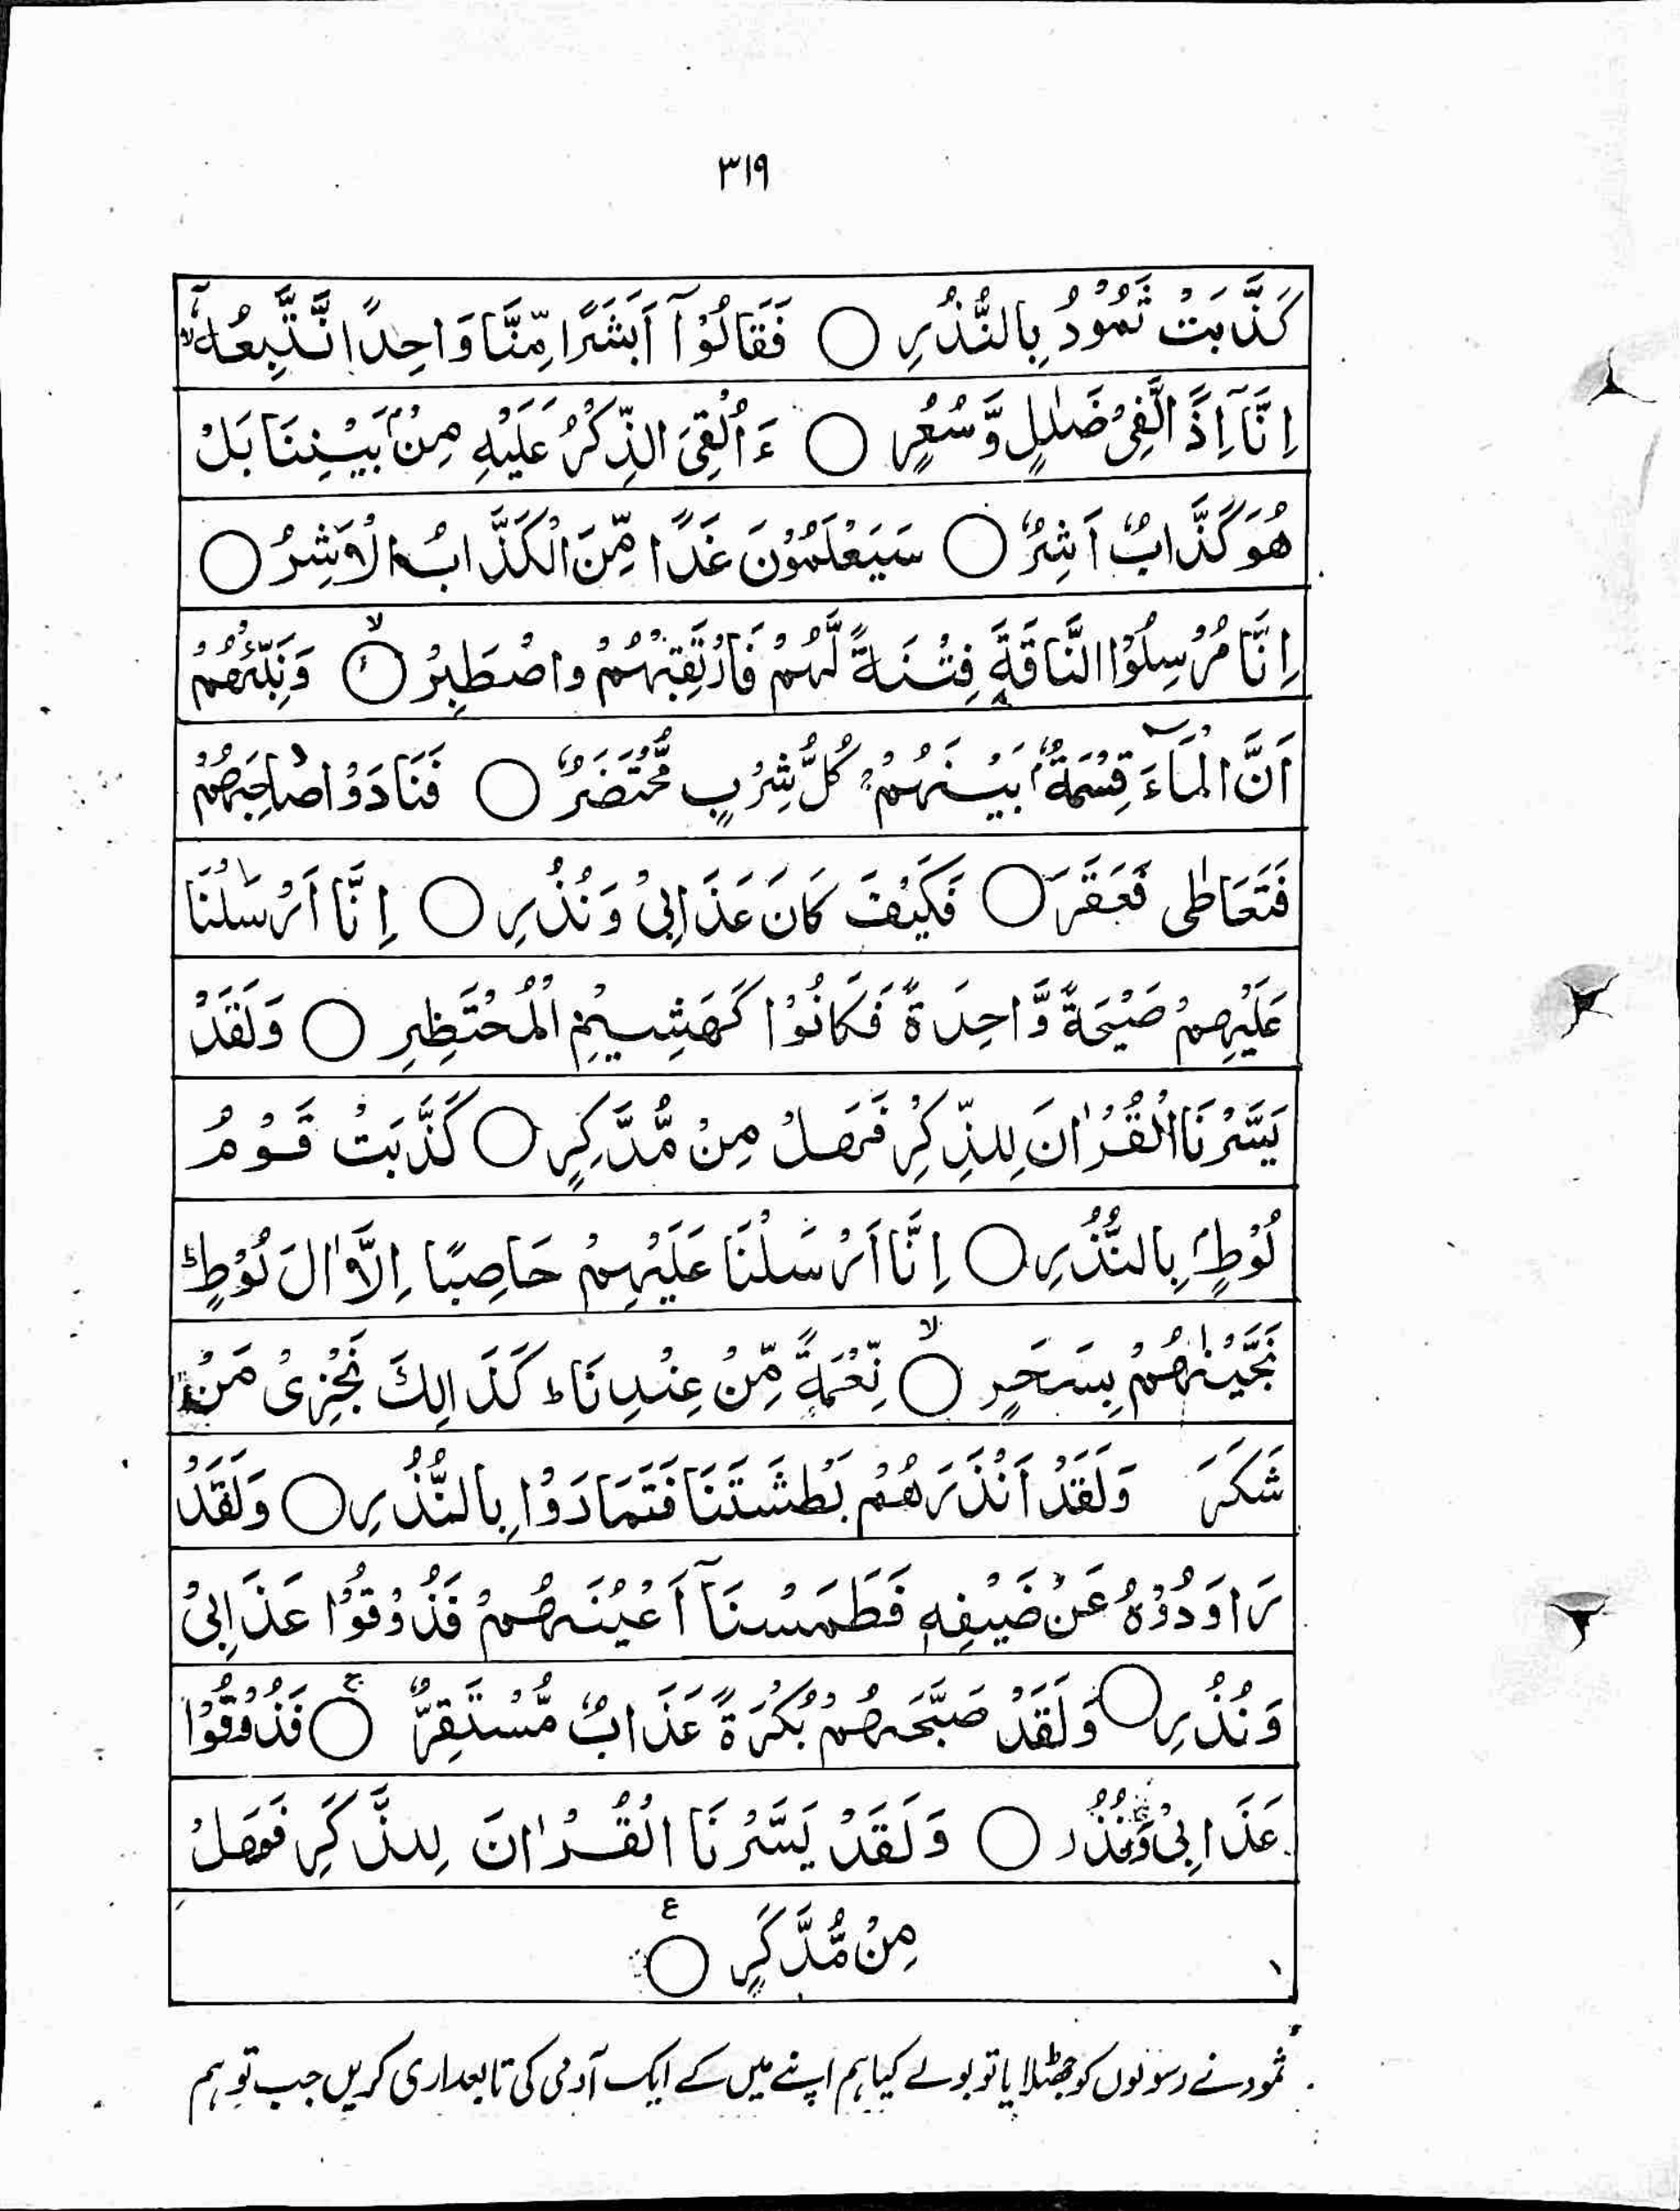 ۳۱۹
كَذَّبَتْ ثَمُوْدُ بِالنُّذُرِ ○ فَقَالُوْٓا اَبَشَرًا مِّنَّا وَاحِدًا نَّتَّبِعُهٗٓ ۙ
اِنَّآ اِذًا لَّفِىْ ضَلٰلٍ وَّسُعُرٍ ○ ءَاُلْقِىَ الذِّكْرُ عَلَيْهِ مِنْۢ بَيْنِنَا بَلْ
هُوَ كَذَّابٌ اَشِرٌ ○ سَيَعْلَمُوْنَ غَدًا مِّنَ الْكَذَّابُ الْاَشِرُ ○
اِنَّا مُرْسِلُوا النَّاقَةِ فِتْنَةً لَّهُمْ فَارْتَقِبْهُمْ واصْطَبِرْ ○ۙ وَنَبِّئْهُمْ
اَنَّ الْمَآءَ قِسْمَةٌۢ بَيْنَهُمْ ۚ كُلُّ شِرْبٍ مُّحْتَضَرٌ ○ فَنَادَوْا صَاحِبَهُمْ
فَتَعَاطٰى فَعَقَرَ ○ فَكَيْفَ كَانَ عَذَابِىْ وَنُذُرِ ○ اِنَّا اَرْسَلْنَا
عَلَيْهِمْ صَيْحَةً وَّاحِدَةً فَكَانُوْا كَهَشِيْمِ الْمُحْتَظِرِ ○ وَلَقَدْ
يَسَّرْنَا الْقُرْاٰنَ لِلذِّكْرِ فَهَلْ مِنْ مُّدَّكِرٍ ○ كَذَّبَتْ قَوْمُ
لُوْطٍۭ بِالنُّذُرِ ○ اِنَّا اَرْسَلْنَا عَلَيْهِمْ حَاصِبًا اِلَّا اٰلَ لُوْطٍ ؕ
نَجَّيْنٰهُمْ بِسَحَرٍ ○ۙ نِّعْمَةً مِّنْ عِنْدِنَا ؕ كَذَالِكَ نَجْزِىْ مَنْ
شَكَرَ وَلَقَدْ اَنْذَرَهُمْ بَطْشَتَنَا فَتَمَارَوْا بِالنُّذُرِ ○ وَلَقَدْ
رَاوَدُوْهُ عَنْ ضَيْفِهٖ فَطَمَسْنَآ اَعْيُنَهُمْ فَذُوْقُوْا عَذَابِىْ
وَنُذُرِ ○ وَلَقَدْ صَبَّحَهُمْ بُكْرَةً عَذَابٌ مُّسْتَقِرٌّ ○ۚ فَذُوْقُوْا
عَذَابِىْ وَنُذُر ○ وَلَقَدْ يَسَّرْنَا الْقُرْاٰنَ لِلذَّكَرِ فَهَلْ
مِنْ مُّدَّكَرٍ ○ ع
ثمود نے رسولوں کو جھٹلایا تو بولے کیا ہم اپنے میں کے ایک آدمی کی تابعداری کریں جب تو ہم